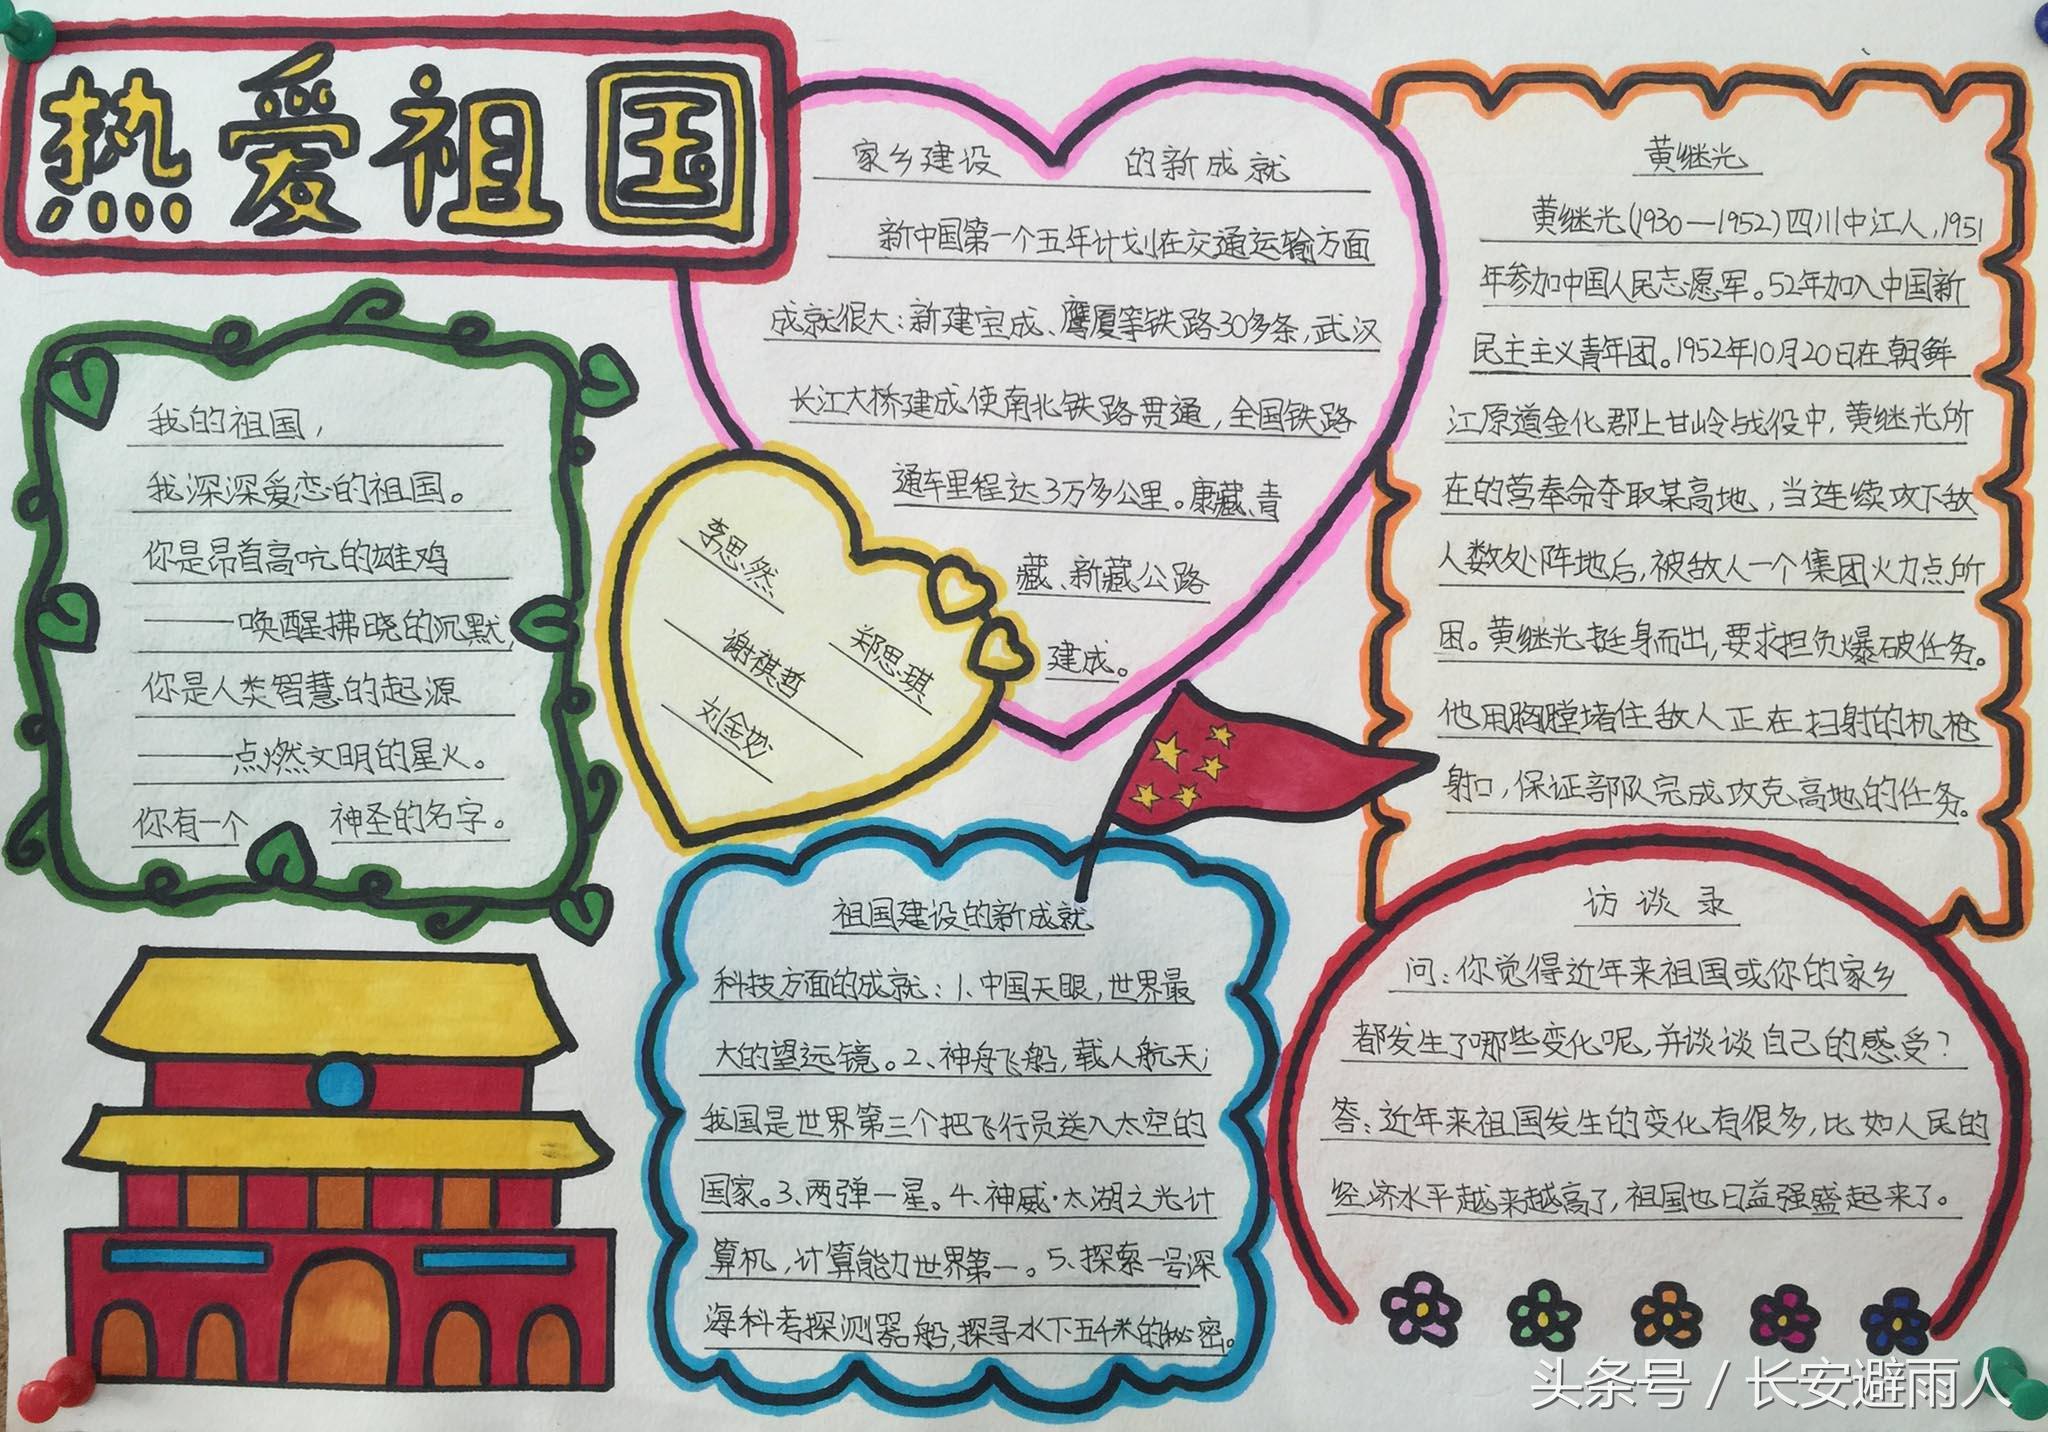 热爱祖国
我的祖国，
我深深爱恋的祖国。
你是昂首高吭的雄鸡
——唤醒拂晓的沉默，
你是人类智慧的起源
——点燃文明的星火。
你有一个 神圣的名字。
家乡建设 的新成就
新中国第一个五年计划在交通运输方面
成就很大：新建宝成、鹰厦等铁路30多条，武汉
长江大桥建成使南北铁路贯通，全国铁路
通车里程达3万多公里。康藏、青
藏、新藏公路
建成。
李思然
郑思琪
谢祺哲
刘金妙
祖国建设的新成就
科技方面的成就：1、中国天眼，世界最
大的望远镜。2、神舟飞船，载人航天；
我国是世界第三个把飞行员送入太空的
国家。3、两弹一星。4、神威·太湖之光计
算机，计算能力世界第一。5、探索一号深
海科考探测器船，探寻水下五千米的秘密。
黄继光
黄继光(1930—1952)四川中江人，1951
年参加中国人民志愿军。52年加入中国新
民主主义青年团。1952年10月20日在朝鲜
江原道金化郡上甘岭战役中，黄继光所
在的营奉命夺取某高地，当连续攻下敌
人数处阵地后，被敌人一个集团火力点所
困。黄继光挺身而出，要求担负爆破任务。
他用胸膛堵住敌人正在扫射的机枪
射口，保证部队完成攻克高地的任务。
访谈录
问：你觉得近年来祖国或你的家乡
都发生了哪些变化呢，并谈谈自己的感受？
答：近年来祖国发生的变化有很多，比如人民的
经济水平越来越高了，祖国也日益强盛起来了。
头条号 / 长安避雨人